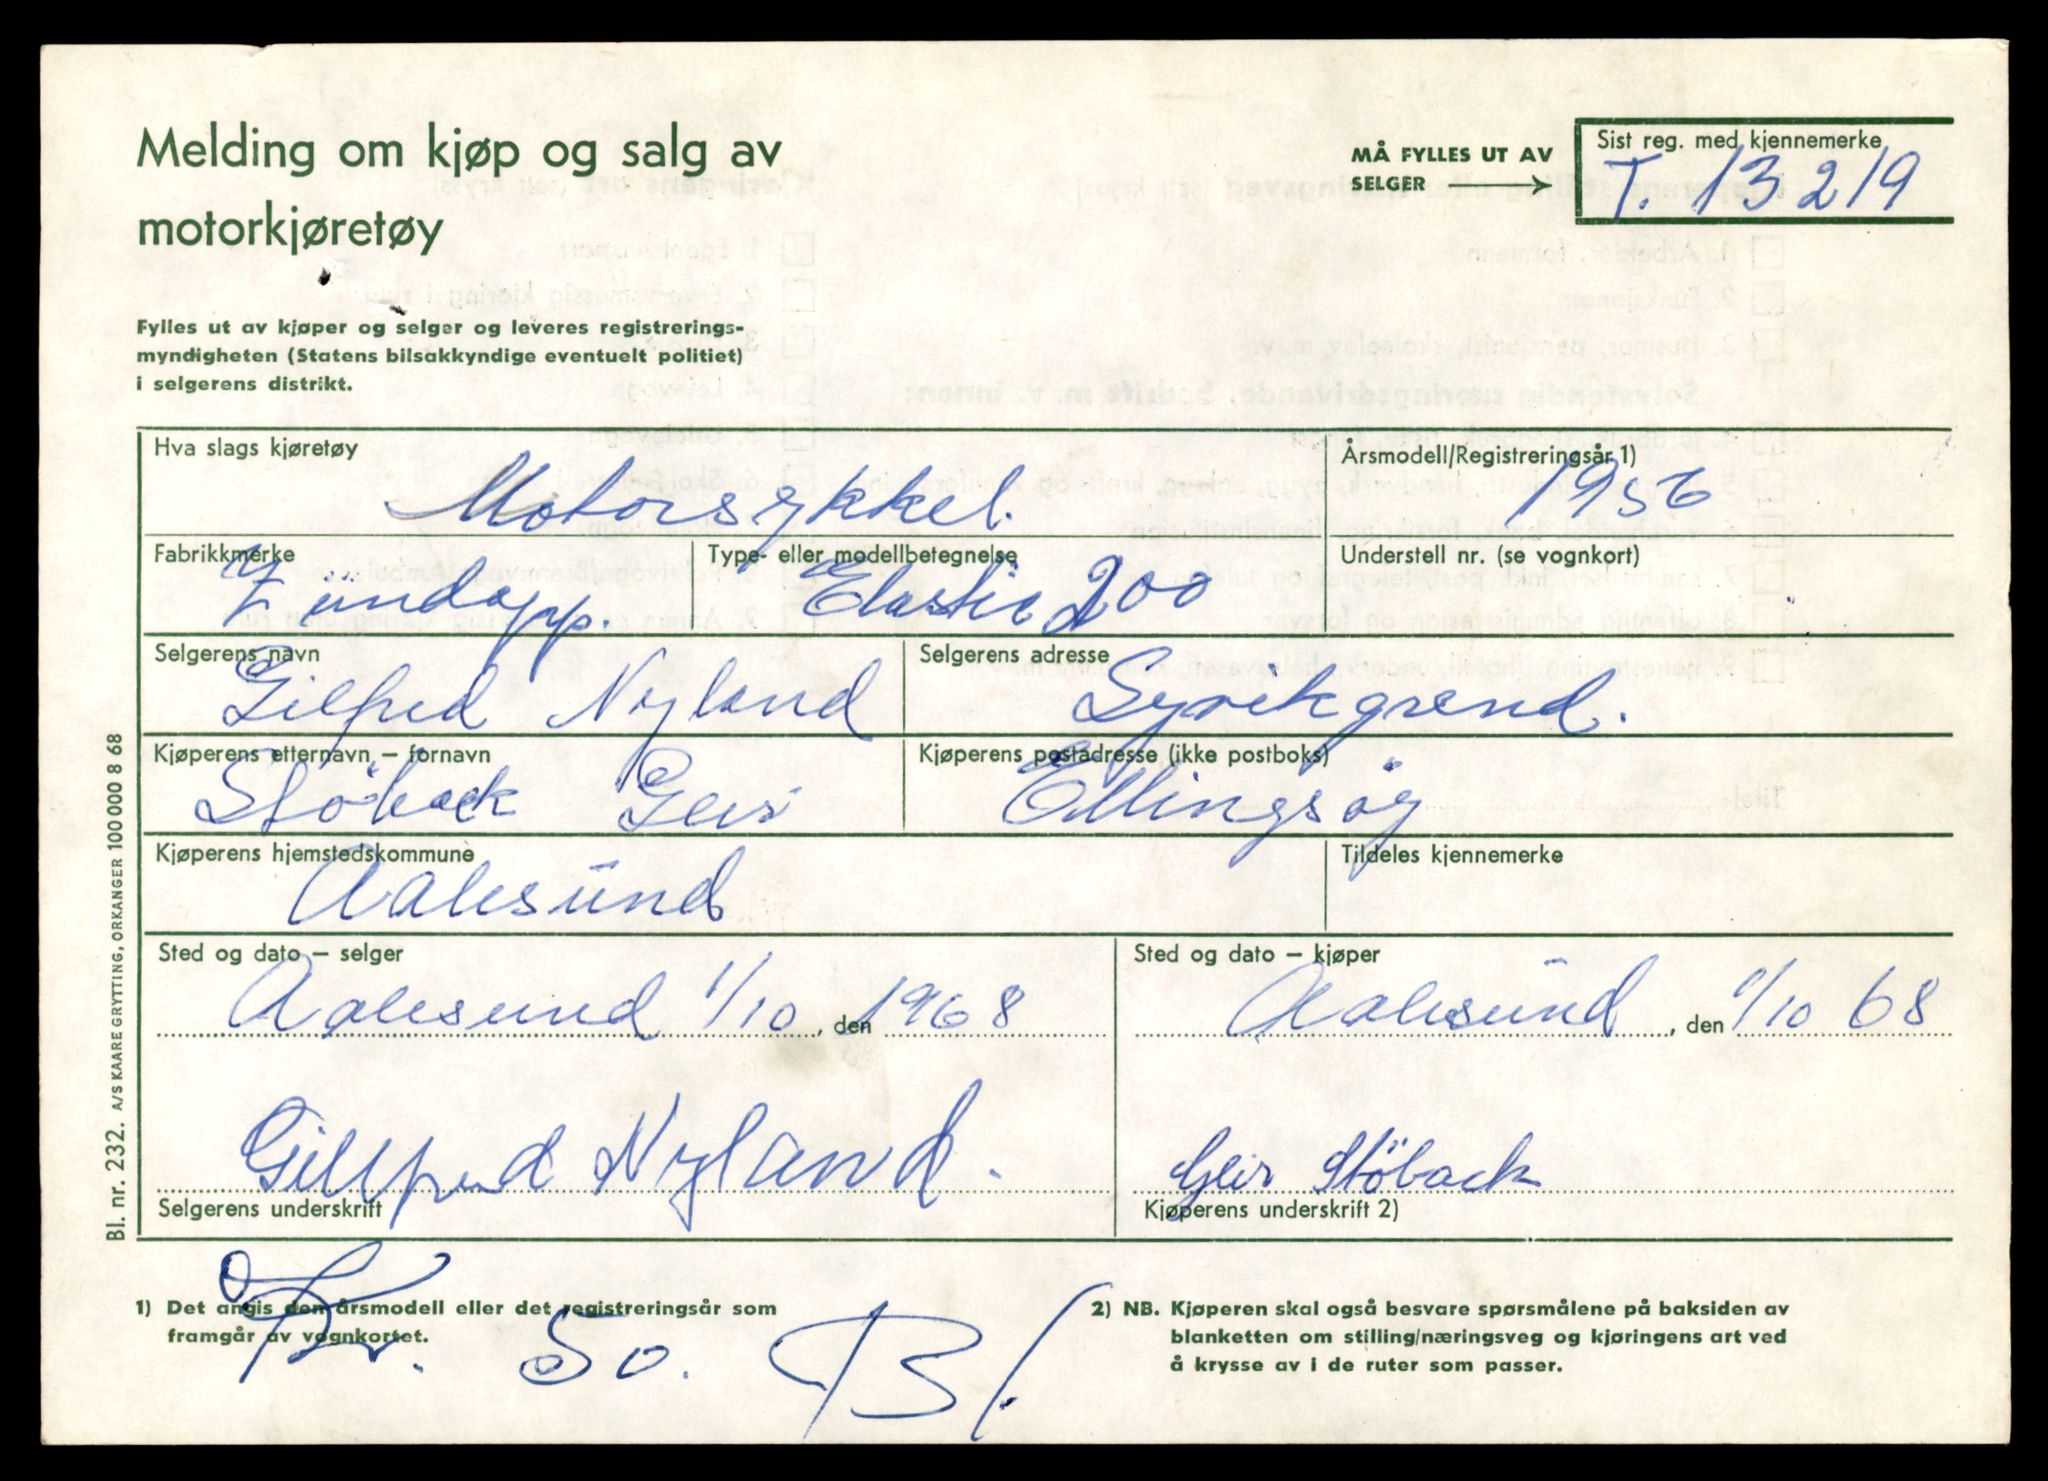 Melding om kjøp og salg av
motorkjøretøy
MÅ FYLLES UT AV
SELGER
Sist reg. med kjennemerke
T. 13219
Fylles ut av kjøper og selger og leveres registrerings-
myndigheten (Statens bilsakkyndige eventuelt politiet)
i selgerens distrikt.
Hva slags kjøretøy
Motorsykkel.
Årsmodell/Registreringsår 1)
1956
Fabrikkmerke
Zündapp.
Type- eller modellbetegnelse
Elastic 200
Understell nr. (se vognkort)
Selgerens navn
Gilfred Nyland
Selgerens adresse
Kjøperens etternavn – fornavn
Stöback Geir
Kjøperens postadresse (ikke postboks)
Ellingsøy
Kjøperens hjemstedskommune
Aalesund
Tildeles kjennemerke
Sted og dato – selger
Aalesund 1/10, den 1968
Sted og dato – kjøper
Aalesund, den 1/10 68
Gillfred Nyland.
Selgerens underskrift
Geir Stöback
Kjøperens underskrift 2)
Kr. 50.
1) Det angis den årsmodell eller det registreringsår som
framgår av vognkortet.
2) NB. Kjøperen skal også besvare spørsmålene på baksiden av
blanketten om stilling/næringsveg og kjøringens art ved
å krysse av i de ruter som passer.
Bl. nr. 232. A/S KAARE GRYTTING, ORKANGER 100 000 8 68